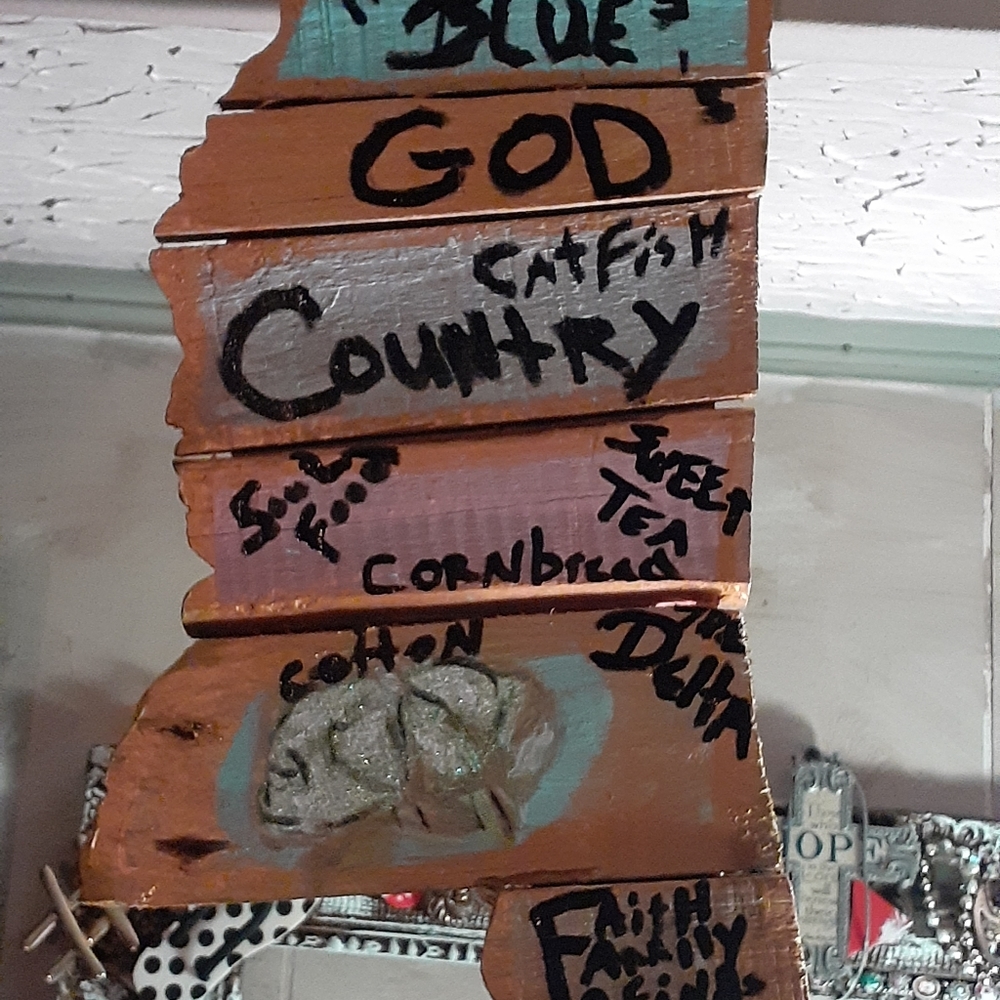 BLUE
GOD
CATFISH
COUNTRY
SOUL
FOOD
SWEET
TEA
CORNbread
COTTON
THE
DELTA
HOPE
FAITH
FAMILY